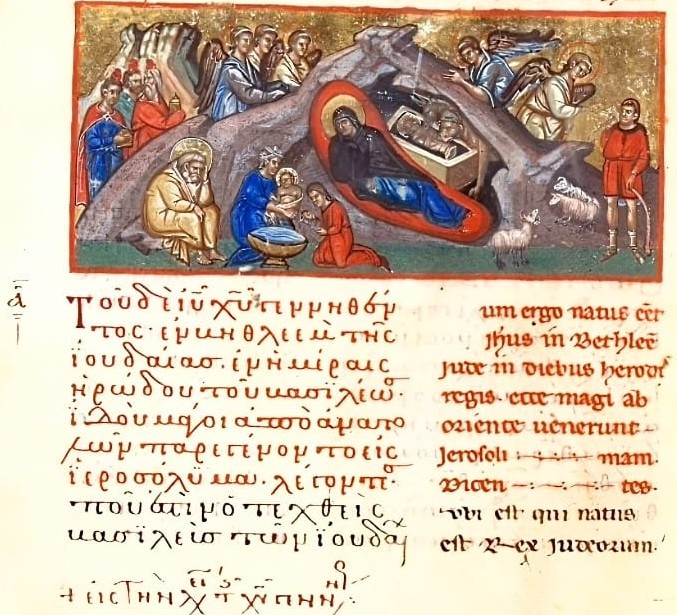 ᾱ
Τοῦ δὲ ῑῡ χ̄ῡ γεννηθέν
τος· ἐν βηθλεὲμ τῆς
ἰουδαίας· ἐν ἡμέραις
ἡρώδου τοῦ βασιλέως·
ἰδοὺ μάγοι ἀπὸ ἀνατο
λῶν παρεγένοντο εἰς
ἱεροσόλυμα· λέγοντ
ποῦ ἐστιν ὁ τεχθεὶς
βασιλεὺς τῶν ἰουδαι
+ εἰς τὴν
um ergo natus eēt
Ihus in Bethleē
Iude in diebus herodis
regis· ecce magi ab
oriente uenerunt
Ierosoli mam·
Dicen tes·
vbi est qui natus
est Rex Iudeorum·